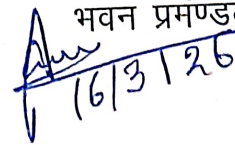 भवन प्रमण्ड
16/3/26